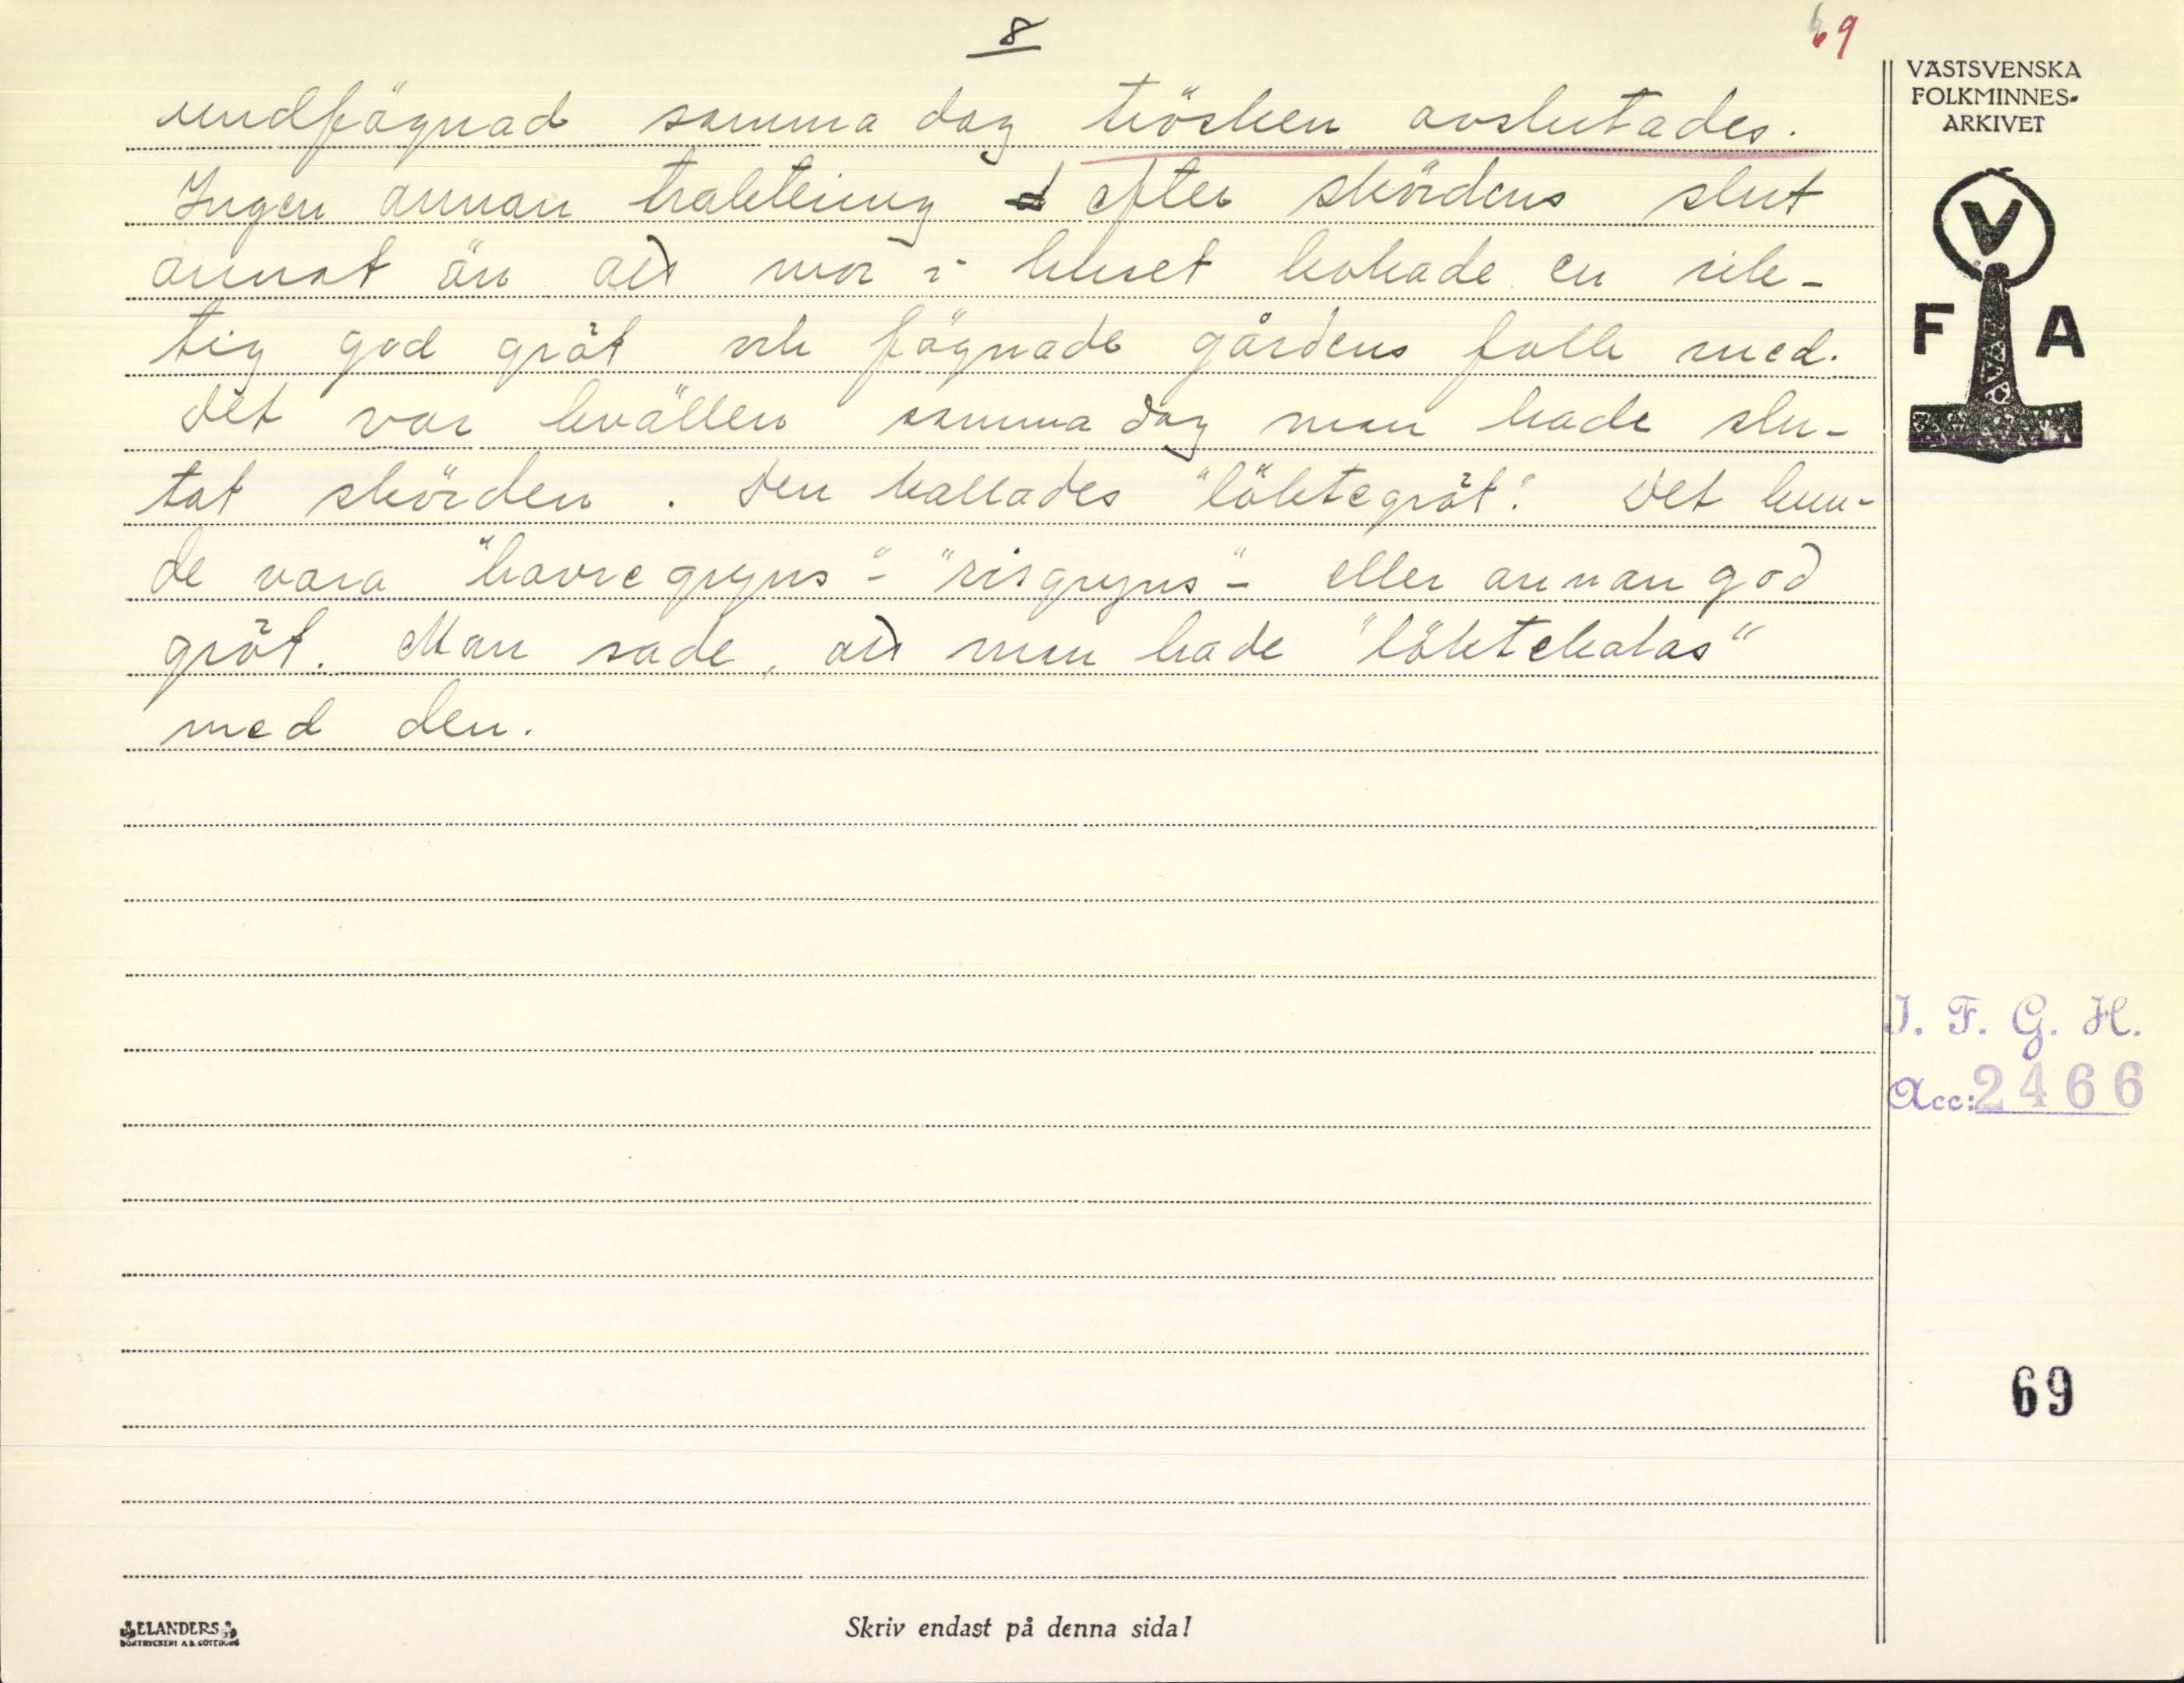 8
69
undfägnad samma dag trösken avslutades.
Ingen annan traktering efter skördens slut
annat än att mor i huset kokade en rik-
tig god gröt och fägnade gårdens folk med.
Det var kvällen samma dag man hade slu-
tat skörden. Den kallades "löktegröt". Det kun-
de vara "havregryns"- "risgryns"- eller annan god
gröt. Man sade, att man hade "löktekalas"
med den.
VÄSTSVENSKA
FOLKMINNES-
ARKIVET
V
F A
I. F. G. H.
Acc: 2466
69
ELANDERS
BOKTRYCKERI A.B. GÖTEBORG
Skriv endast på denna sida!